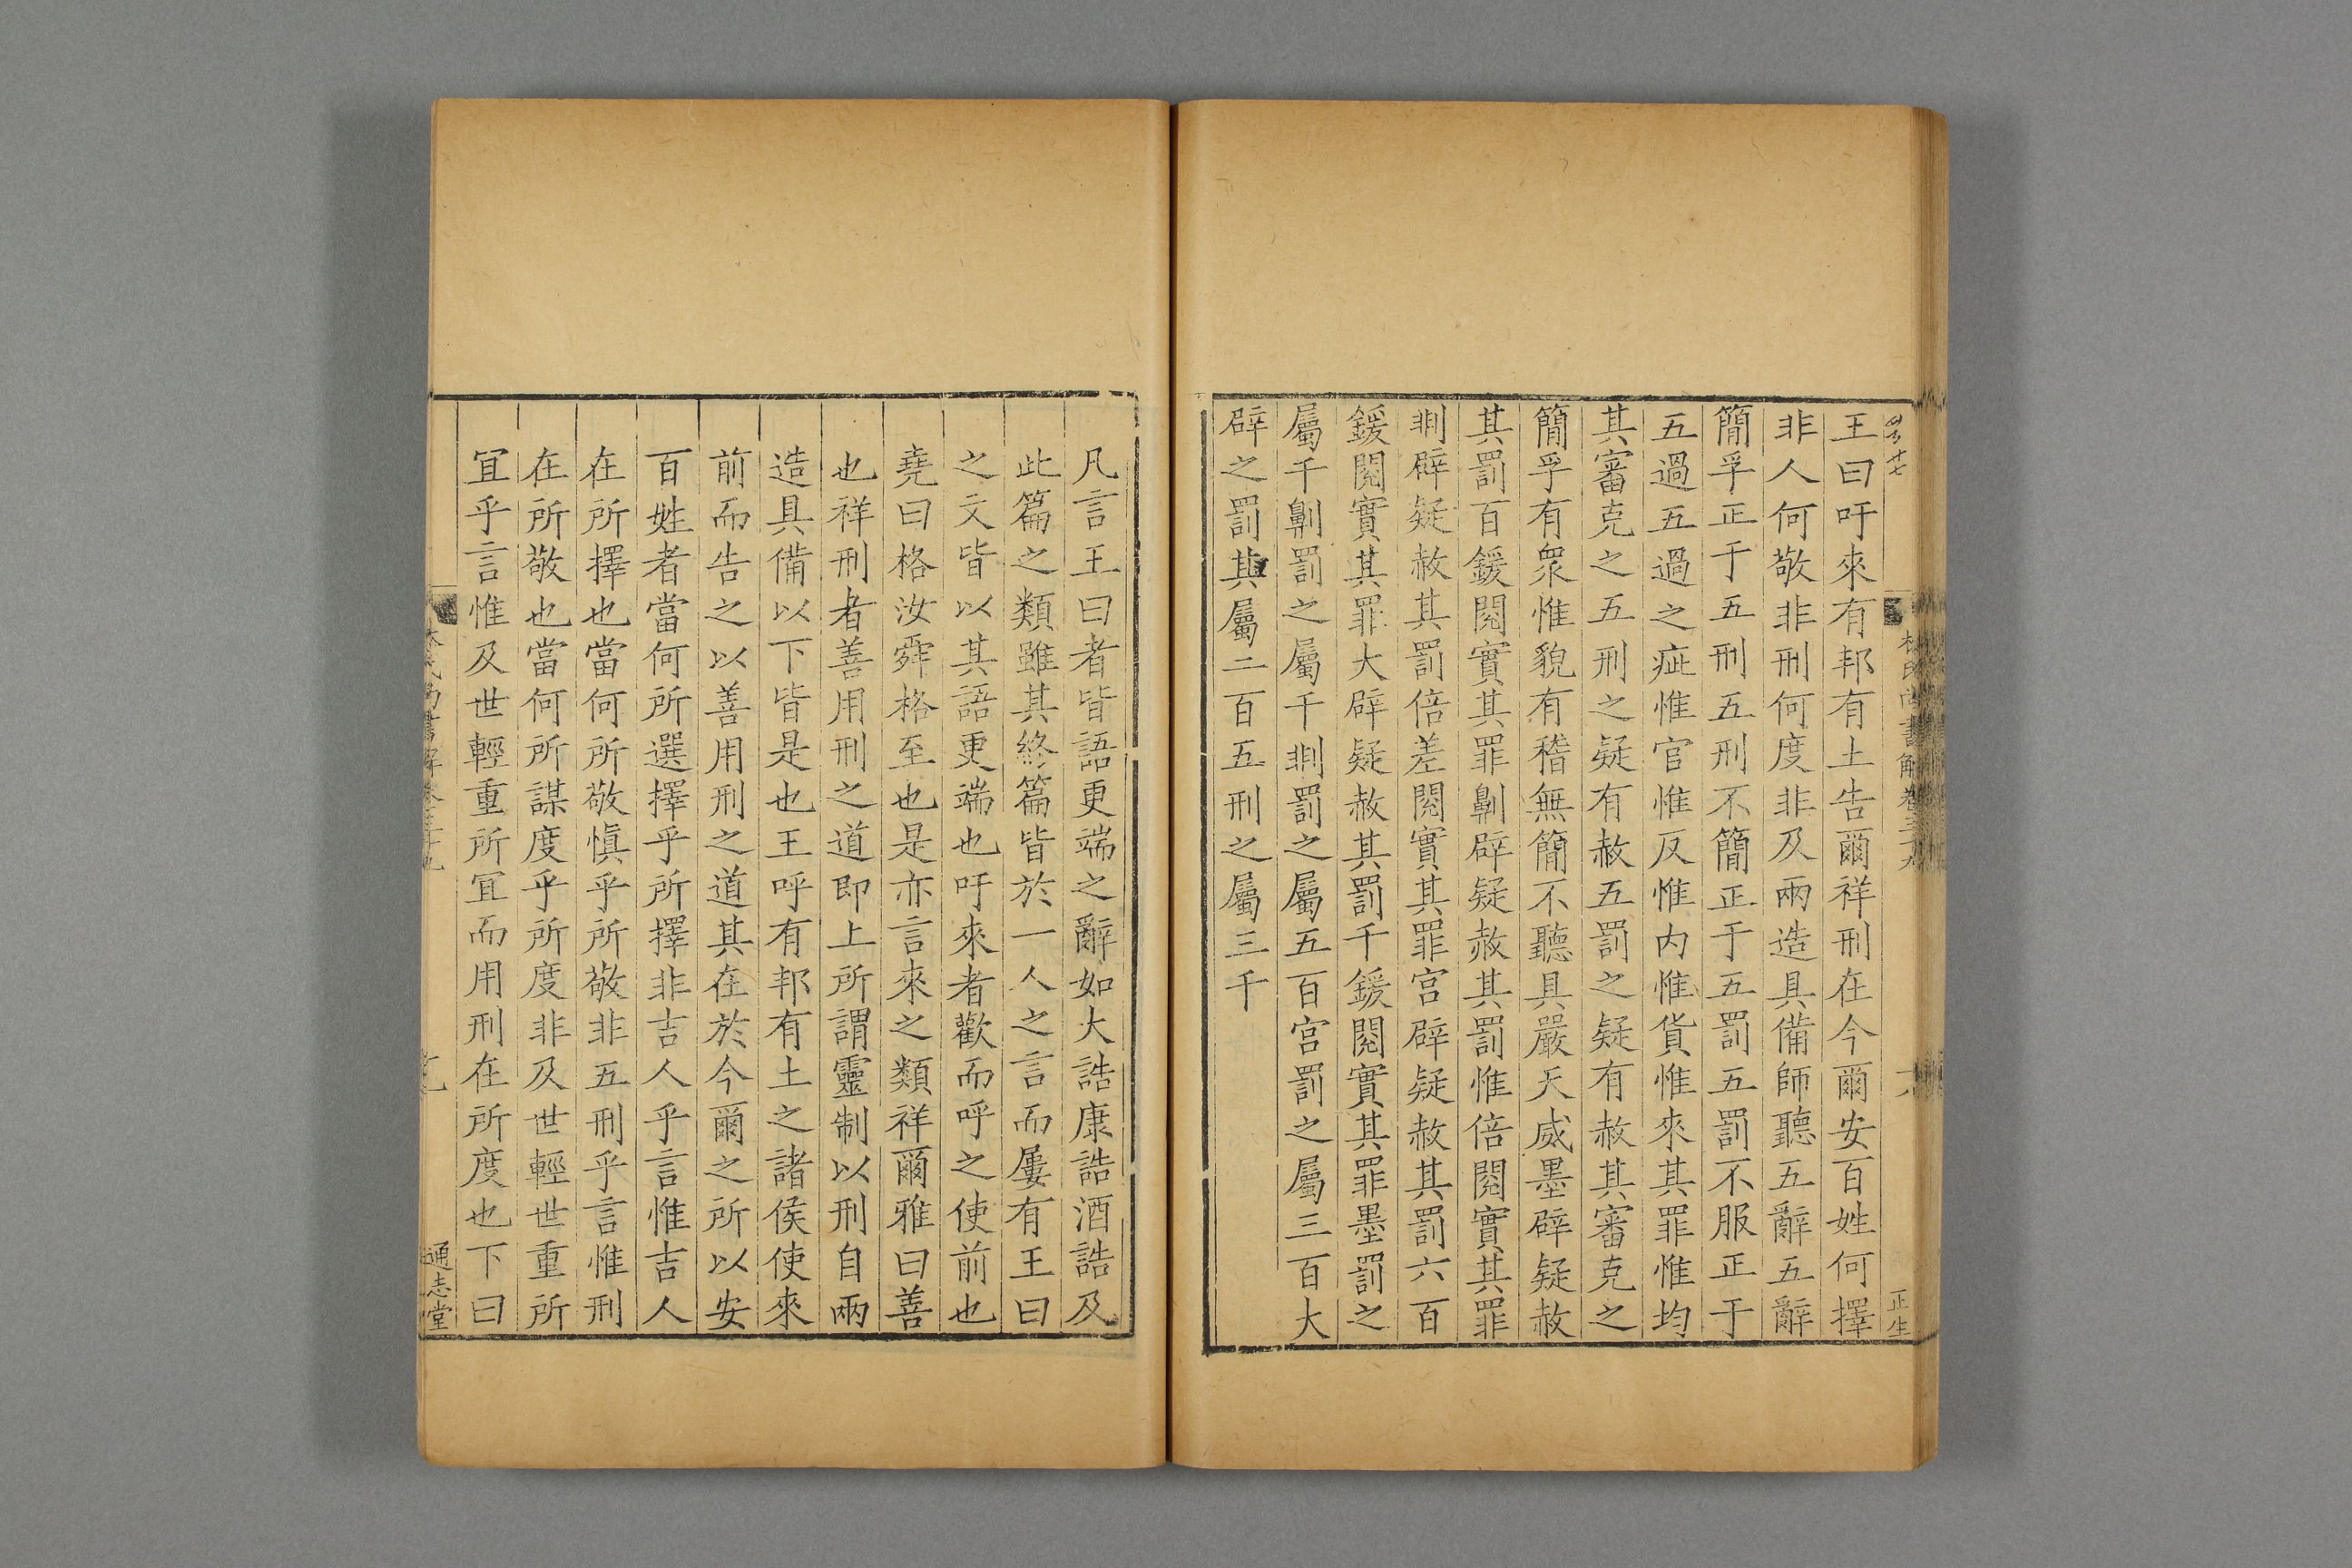 王曰吁來有邦有土告爾祥刑在今爾安百姓何擇
非人何敬非刑何度非及兩造具備師聽五辭五辭
簡孚正于五刑五刑不簡正于五罰五罰不服正于
五過五過之疵惟官惟反惟内惟貨惟來其罪惟均
其審克之五刑之疑有赦五罰之疑有赦其審克之
簡孚有衆惟貌有稽無簡不聽具嚴天威墨辟疑赦
其罰百鍰閱實其罪劓辟疑赦其罰惟倍閱實其罪
剕辟疑赦其罰倍差閱實其罪宫辟疑赦其罰六百
鍰閱實其罪大辟疑赦其罰千鍰閱實其罪墨罰之
屬千劓罰之屬千剕罰之屬五百宫罰之屬三百大
辟之罰其屬二百五刑之屬三千
凡言王曰者皆語更端之辭如大誥康誥酒誥及
此篇之類雖其終篇皆於一人之言而屢有王曰
之文皆以其語更端也吁來者歡而呼之使前也
堯曰格汝舜格至也是亦言來之類祥爾雅曰善
也祥刑者善用刑之道即上所謂靈制以刑自兩
造具備以下皆是也王呼有邦有土之諸侯使來
前而告之以善用刑之道其在於今爾之所以安
百姓者當何所選擇乎所擇非吉人乎言惟吉人
在所擇也當何所敬慎乎所敬非五刑乎言惟刑
在所敬也當何所謀度乎所度非及世輕世重所
宜乎言惟及世輕重所宜而用刑在所度也下曰
通志堂